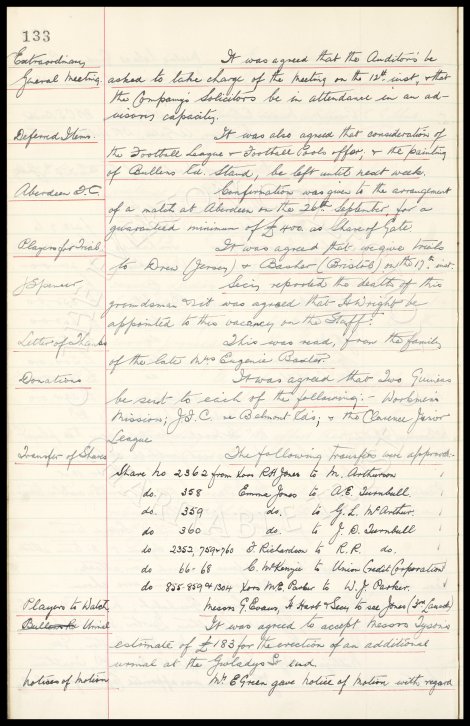 133
Extraordinary It was agreed that the Auditors be
General Meeting. asked to take charge of the meeting on the 12th inst, & that
the Company's Solicitors be in attendance in an ad-
visory capacity.
Deferred Items. It was also agreed that consideration of
the Football League & Football Pools offer, & the painting
of Bullens Rd. Stand, be left until next week.
Aberdeen F.C. Confirmation was given to the arrangement
of a match at Aberdeen on the 26th September, for a
guaranteed minimum of £400. as Share of Gate.
Players for Trial. It was agreed that we give trials
to Drew (Jersey) & Basher (Bristol) on the 17th inst.
J Spencer. Secy. reported the death of this
groundsman & it was agreed that H Wright be
appointed to this vacancy on the Staff.
Letter of Thanks This was read, from the family
of the late Mrs Eugenie Baxter.
Donations It was agreed that Two Guineas
be sent to each of the following:- Workmens
Mission; J.F.C. re Belmont Rd.; & the Clarence Junior
League
Transfer of Shares The following transfers were approved:-
Share No 2362 from Xors R H Jones to M. Arthurson
do. 358 Emma Jones to A.E. Turnbull.
do. 359 do. to G.L. McArthur.
do 360 do. to J.D. Turnbull
do 2352, 759 & 760 F. Richardson to R.P. do.
do 66-68 C. McKenzie to Union Credit Corporation
do 855-859 & 1304 Xors M E. Parker to W.J. Parker.
Players to Watch Messrs G Evans, H Hart & Secy to see Jones
Urinal It was agreed to accept Messrs Tysons
estimate of £183 for the erection of an additional
urinal at the Gwladys St end.
Notices of Motion Mr. E Green gave notice of motion with regard